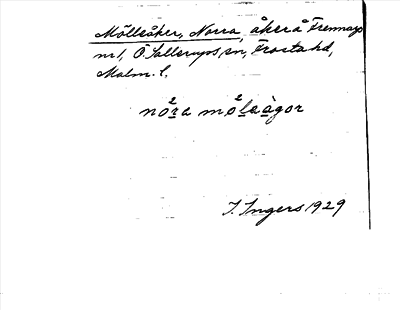 Möllsåker, Norra, åker å Fremmaps
nr 1, Ö. Sallerups sn, Frosta hd,
Malm. l.
nora mölsågor
I. Ingers 1929